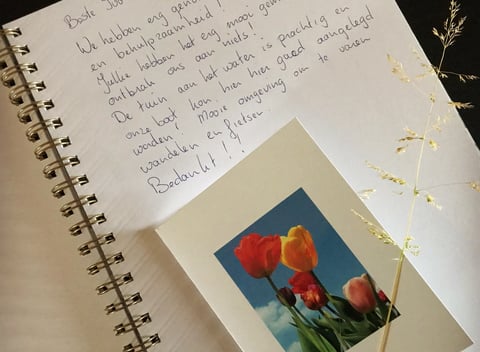 Beste
We hebben erg geno
en behulpzaamheid!
Jullie hebben het erg mooi gem
ontbrak ons aan niets!
De tuin aan het water is prachtig en
onze boot kon hier hier goed aangelegd
worden, Mooie omgeving om te varen
wandelen en fietsen.
Bedankt!!